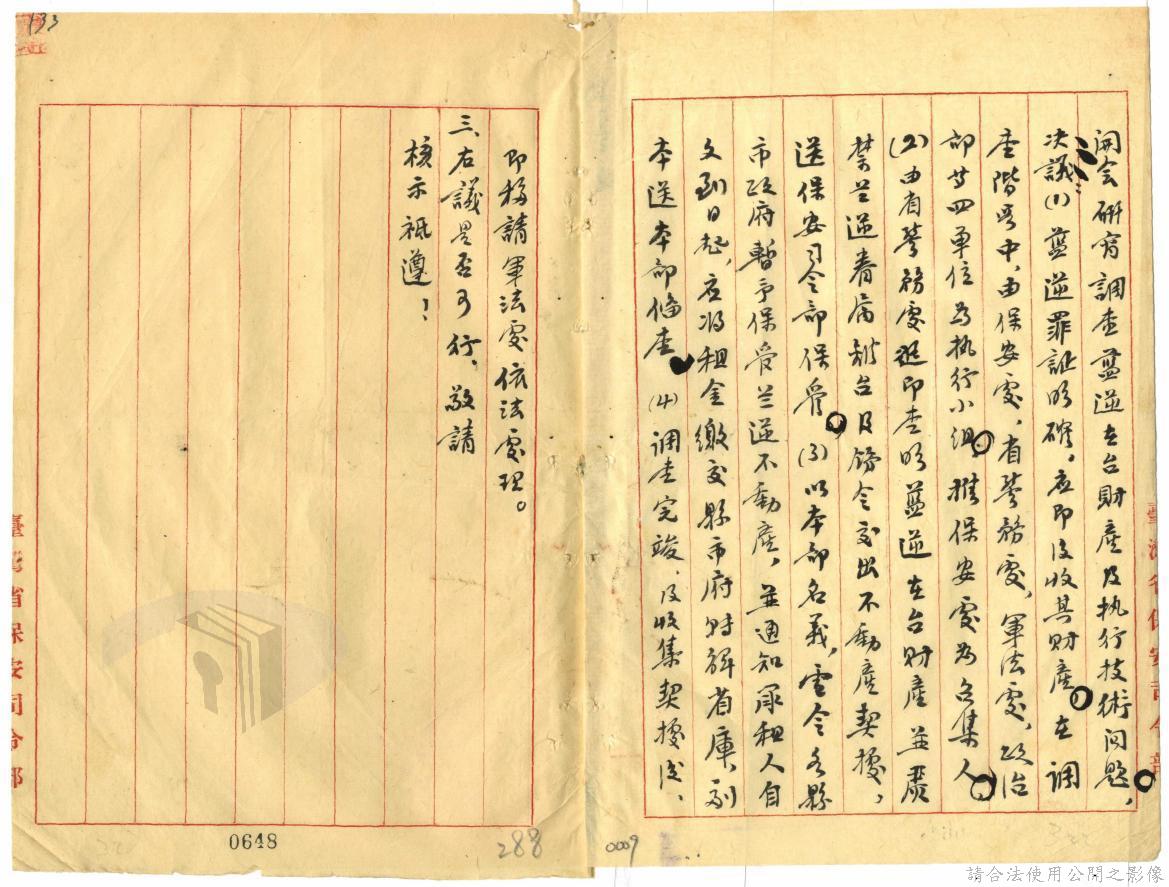 開會研究調查藍逆在台財產及执行技術问題，
决議(1)藍逆罪証明確，应即没收其財產。在調
查階段中，由保安處，省警務處，軍法處，政治
部等四单位為执行小組，推保安處為召集人。
(2)由省警務處迅即查明藍逆在台財產並嚴
禁兰逆眷属離台及飭令交出不動產契據，
送保安司令部保管。(3)以本部名義，電令各縣
市政府暫予保管兰逆不動產，並通知承租人自
文到日起，应将租金繳交縣市府轉解省庫，副
本送本部備查。(4)調查完竣，及收集契據後，
即移請軍法處依法處理。
三、右議是否可行，敬請
核示祗遵！
臺灣省保安司令部
臺灣省保安司令部
133
0648
288
0009
請合法使用公開之影像